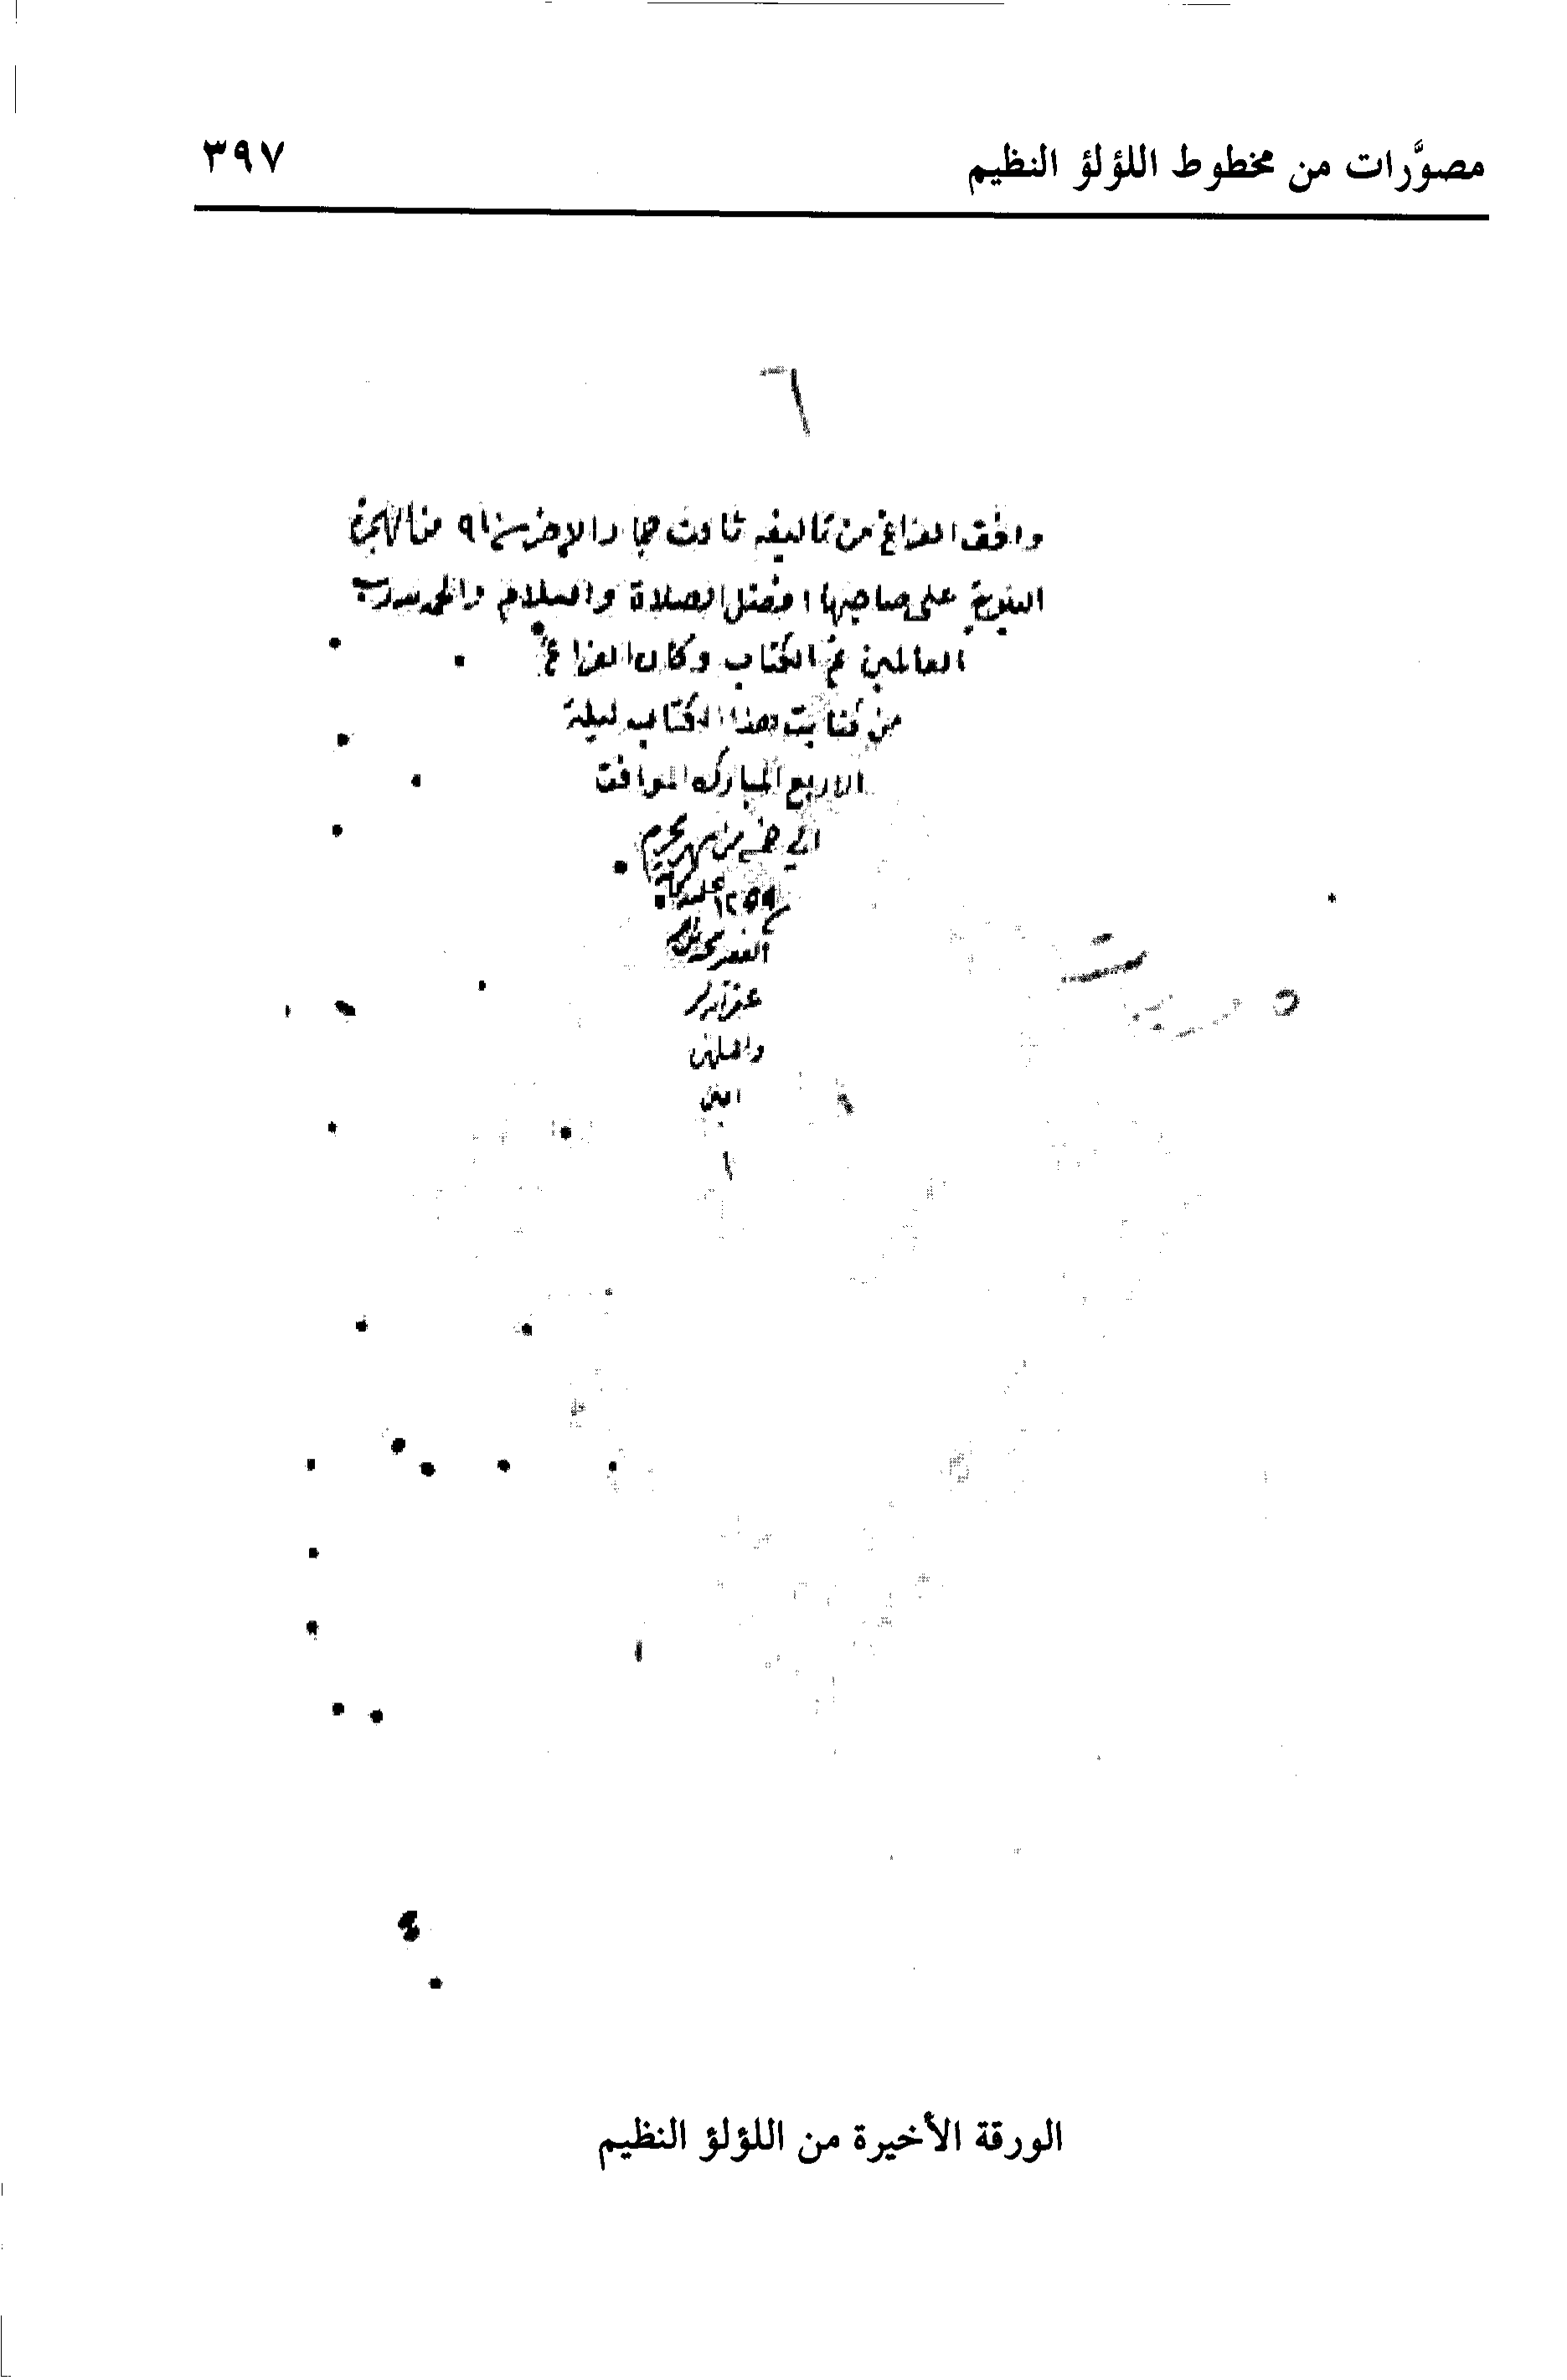 مصوَّرات من مخطوط اللؤلؤ النظيم
٣٩٧
٦
وافق الفراغ من تاليفه ثالث جماد الاخر سنة من الهجرة
النبوية على صاحبها افضل الصلاة والسلام والحمد لله رب
العالمين تم الكتاب وكان الفراغ
من كتابت هذا الكتاب ليلة
الاربع المبارك الموافق
الى من شهر محرم
١٢٥٩
الفقير
غفر الله
امين
الورقة الأخيرة من اللؤلؤ النظيم